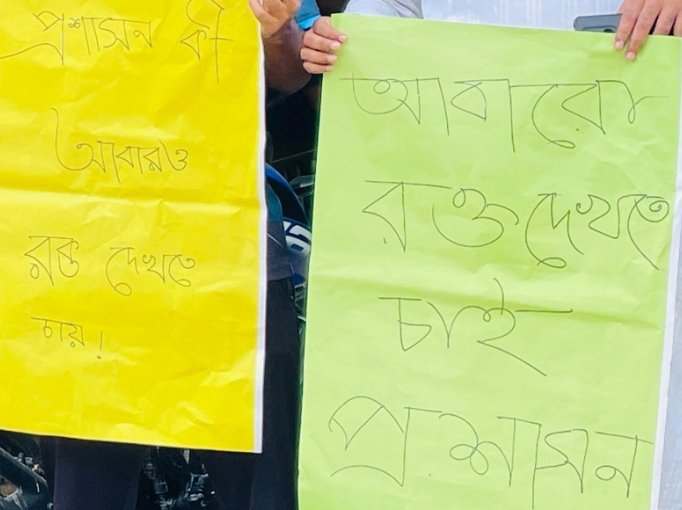 প্রশাসন কী
আবারও
রক্ত দেখতে
চায়!
আবারো
রক্ত দেখতে
চাই
প্রশাসন